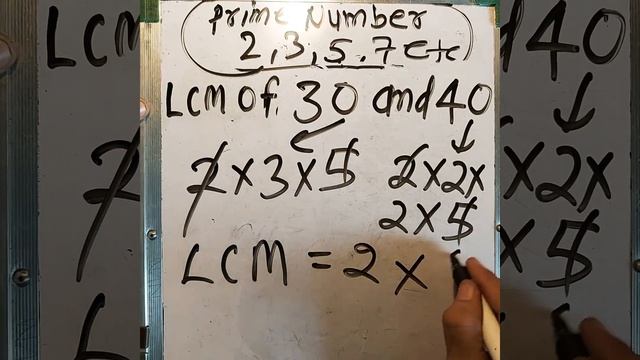 Prime Number
2,3,5.7 etc
LCM Of. 30 and 40
2×3×5 2×2×
2×5
LCM = 2 ×